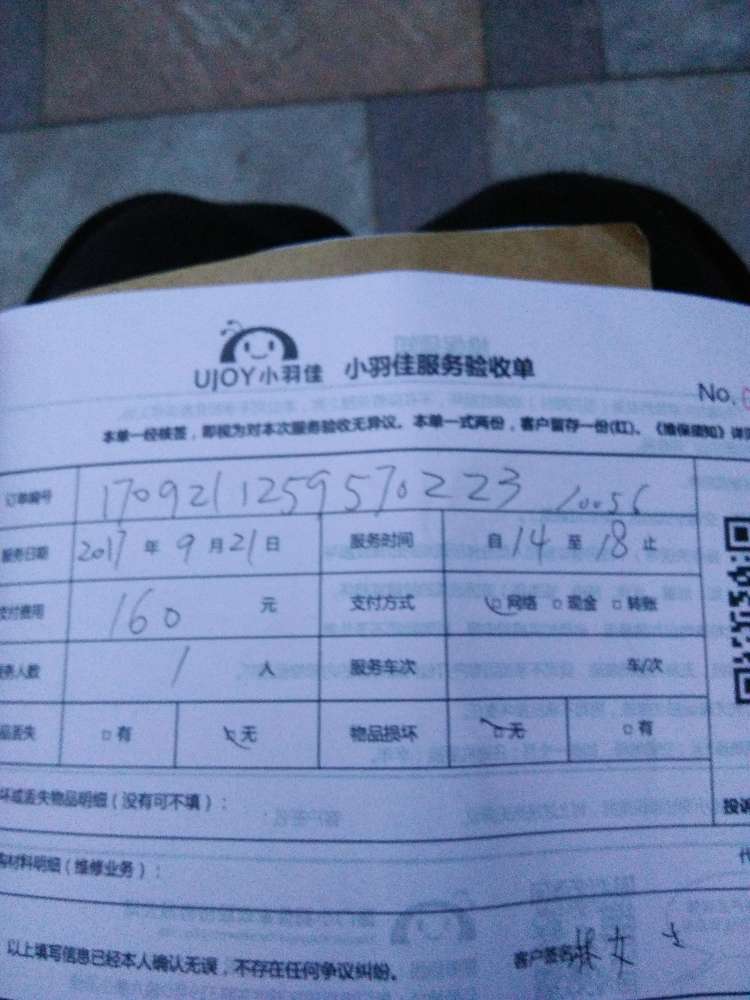 UJOY小羽佳 小羽佳服务验收单
No.
本单一经核签，即视为对本次服务验收无异议。本单一式两份，客户留存一份(红)。《维保须知》详
订单编号 1709211259570223 20056
服务日期 2017 年 9 月 21 日 服务时间 自 14 至 18 止
支付费用 160 元 支付方式 网络 现金 转账
务人数 1 人 服务车次 车/次
品丢失 有 无 物品损坏 无 有
坏或丢失物品明细（没有可不填）： 投诉
材料明细（维修业务）：
以上填写信息已经本人确认无误，不存在任何争议纠纷。 客户签名 林女士